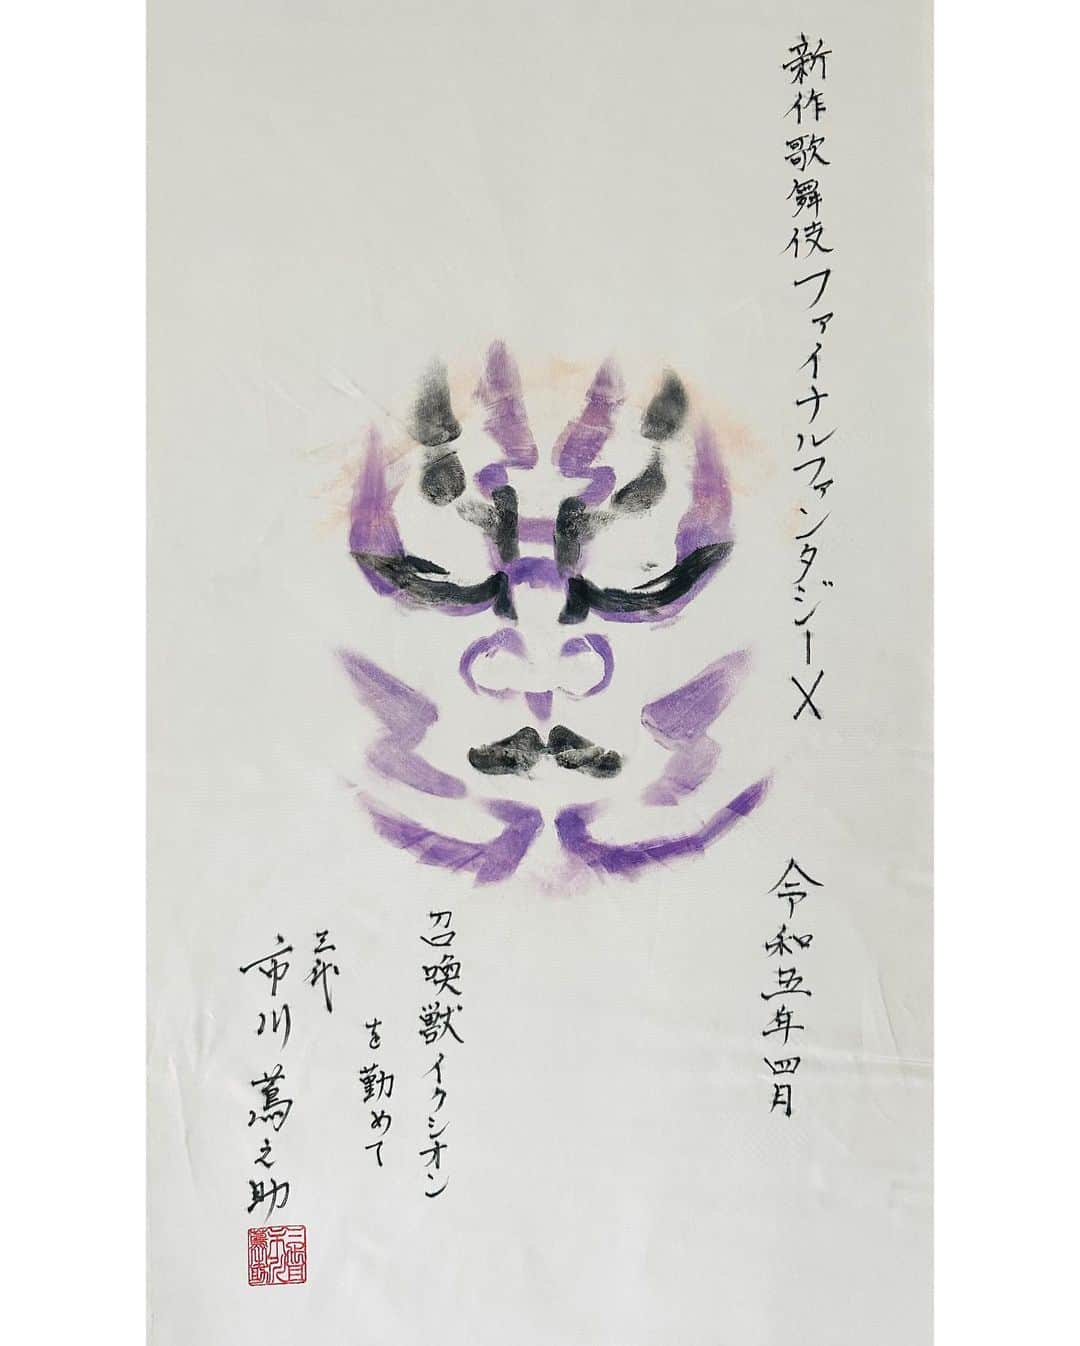 新作歌舞伎ファイナルファンタジーX
令和五年四月
召喚獣イクシオン
を勤めて
三代
市川蔦之助